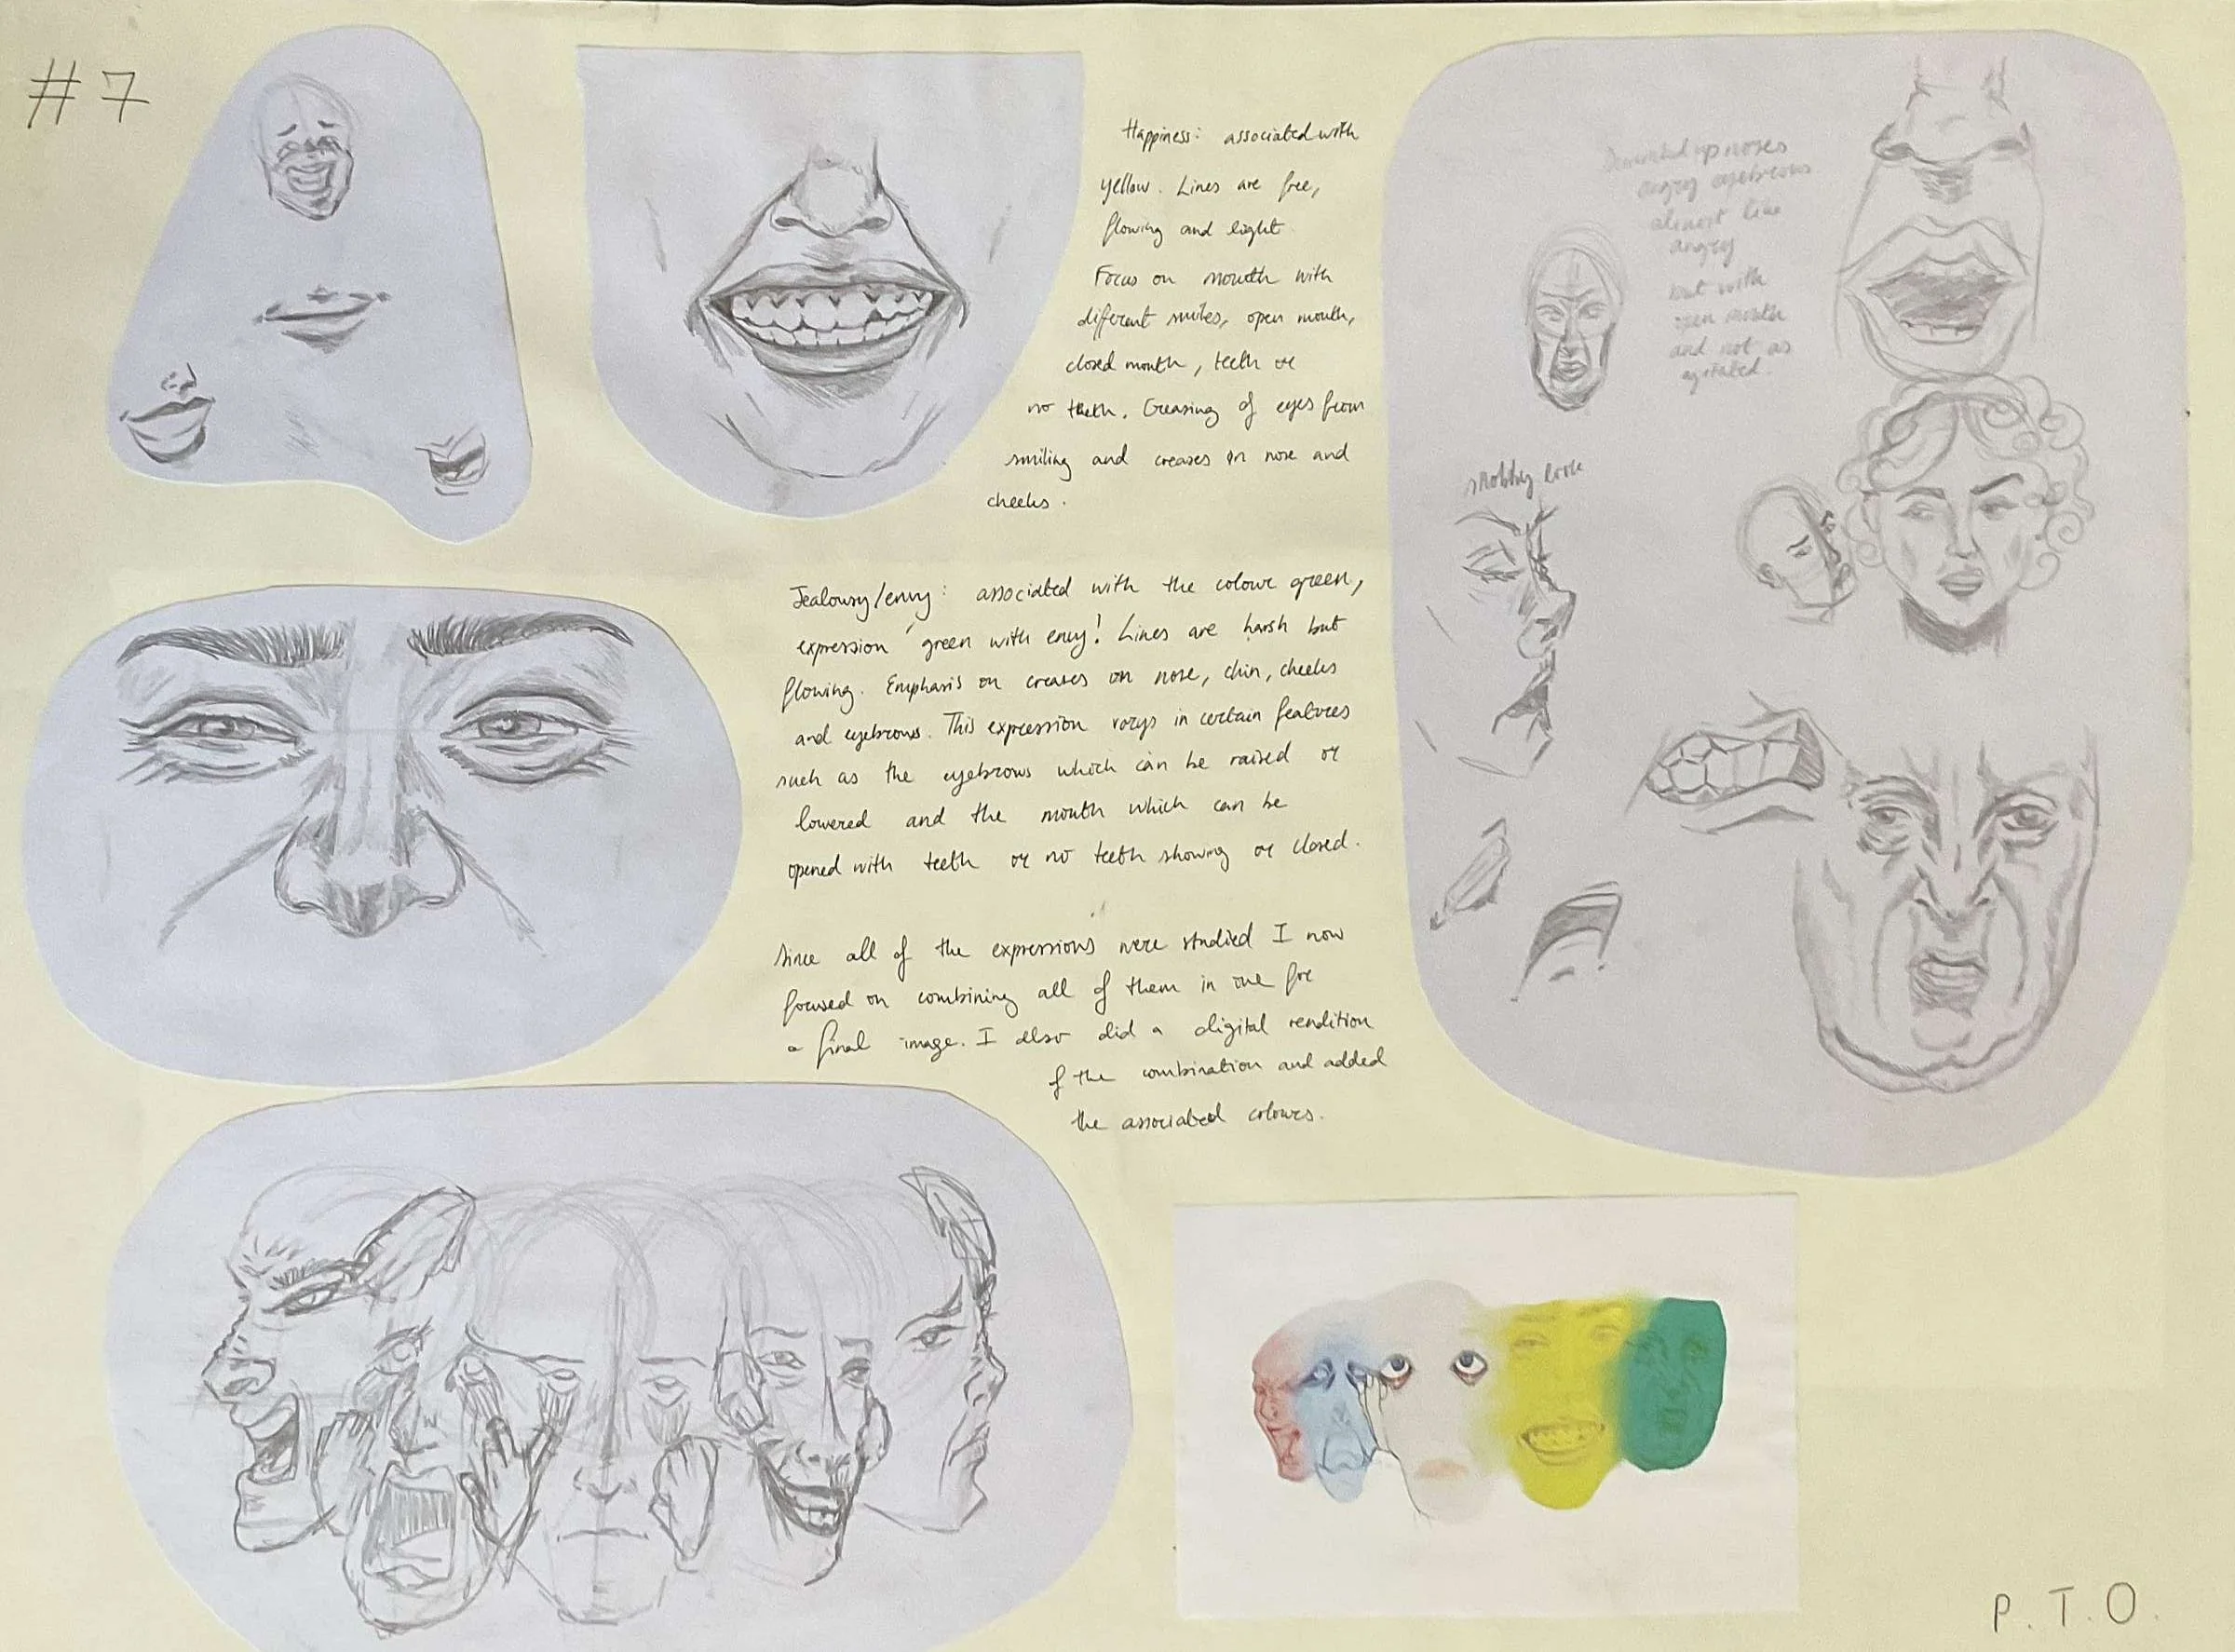 #7
Happiness: associated with
yellow. Lines are free,
flowing and light
Focus on mouth with
different smiles, open mouth,
closed mouth, teeth or
no teeth. Creasing of eyes from
smiling and creases on nose and
cheeks.
Jealousy/envy: associated with the colour green,
expression 'green with envy! Lines are harsh but
flowing. Emphasis on creases on nose, chin, cheeks
and eyebrows. This expression varys in certain features
such as the eyebrows which can be raised or
lowered and the mouth which can be
opened with teeth or no teeth showing or closed.
Since all of the expressions were studied I now
focused on combining all of them in one for
a final image. I also did a digital rendition
of the combination and added
the associated colours.
up noses
angry eyebrows
almost like
angry
but with
open mouth
and not as
agitated.
snobby look
P.T.O.